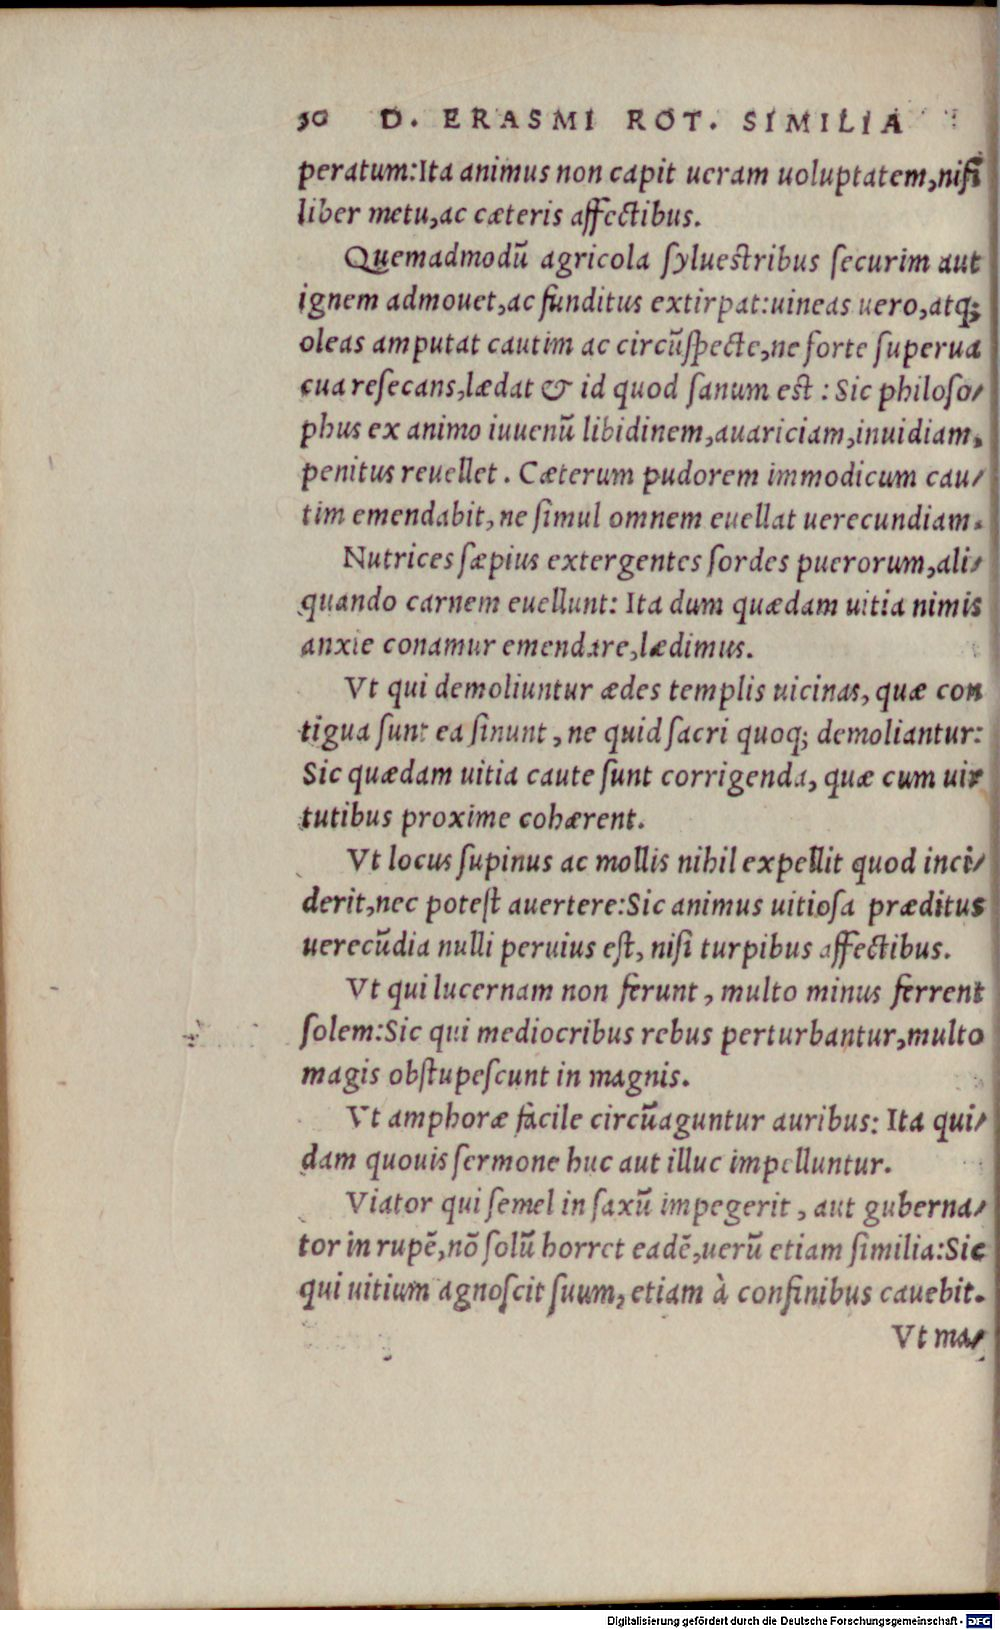 30 D. ERASMI ROT. SIMILIA
peratum:Ita animus non capit ueram uoluptatem,niſi
liber metu,ac cæteris affectibus.
Quemadmodū agricola ſylueſtribus ſecurim aut
ignem admouet,ac funditus extirpat:uineas uero,atq;
oleas amputat cautim ac circūſpecte,ne forte ſuperua
cua reſecans,lædat & id quod ſanum eſt : Sic philoſo/
phus ex animo iuuenū libidinem,auariciam,inuidiam,
penitus reuellet. Cæterum pudorem immodicum cau/
tim emendabit, ne ſimul omnem euellat uerecundiam.
Nutrices ſæpius extergentes ſordes puerorum,ali/
quando carnem euellunt: Ita dum quædam uitia nimis
anxie conamur emendare,lædimus.
Vt qui demoliuntur ædes templis uicinas, quæ con
tigua ſunt ea ſinunt, ne quid ſacri quoq; demoliantur:
Sic quædam uitia caute ſunt corrigenda, quæ cum uir
tutibus proxime cohærent.
Vt locus ſupinus ac mollis nihil expellit quod inci/
derit,nec poteſt auertere:Sic animus uitioſa præditus
uerecūdia nulli peruius eſt, niſi turpibus affectibus.
Vt qui lucernam non ferunt, multo minus ferrent
ſolem:Sic qui mediocribus rebus perturbantur,multo
magis obſtupeſcunt in magnis.
Vt amphoræ facile circūaguntur auribus: Ita qui/
dam quouis ſermone huc aut illuc impelluntur.
Viator qui ſemel in ſaxū impegerit, aut guberna/
tor in rupē,nō ſolū horret eadē,uerū etiam ſimilia:Sic
qui uitium agnoſcit ſuum, etiam à confinibus cauebit.
Vt ma/
Digitalisierung gefördert durch die Deutsche Forschungsgemeinschaft - DFG